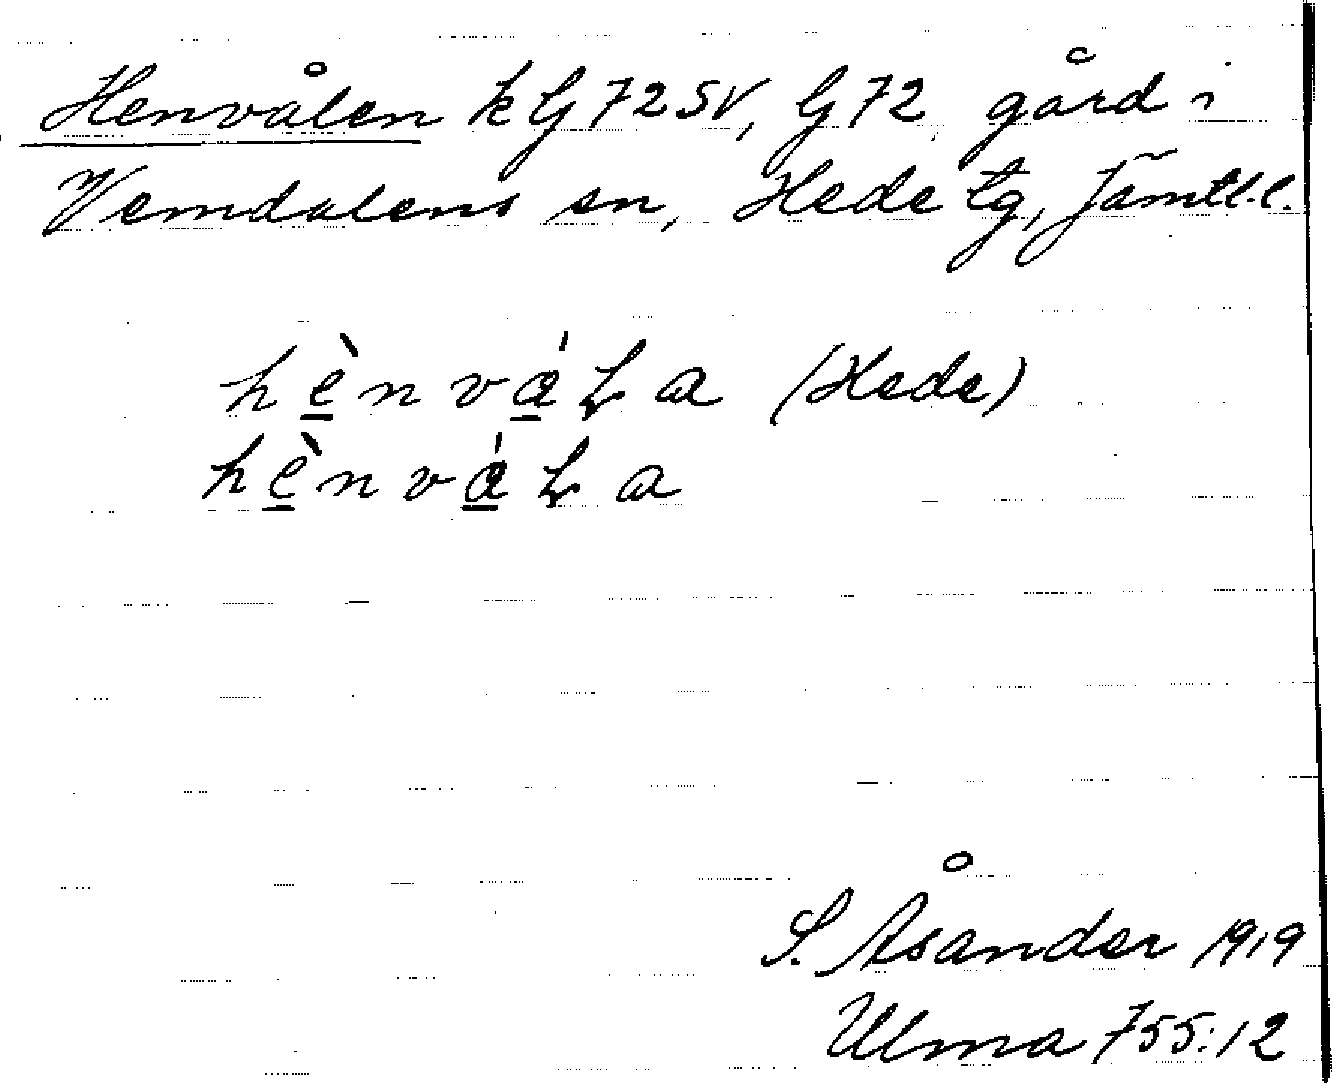 Henvålen k G 72 SV, G 72, gård i
Vemdalens sn, Hede tg, Jämtl.l.
hè̲nvá̲ⱡa (Hede)
hè̲nvá̲ⱡa
S. Åsander 1919
Ulma 755:12